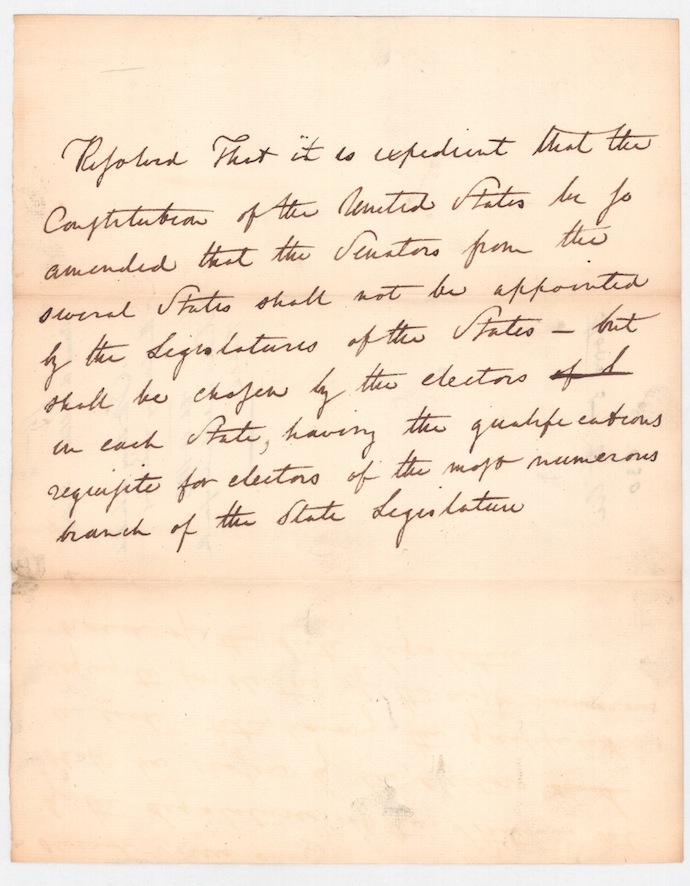 Resolved That it is expedient that the
Constitution of the United States be so
amended that the Senators from the
several States shall not be appointed
by the Legislatures of the States – but
shall be chosen by the electors of
in each State, having the qualifications
requisite for electors of the most numerous
branch of the State Legislature